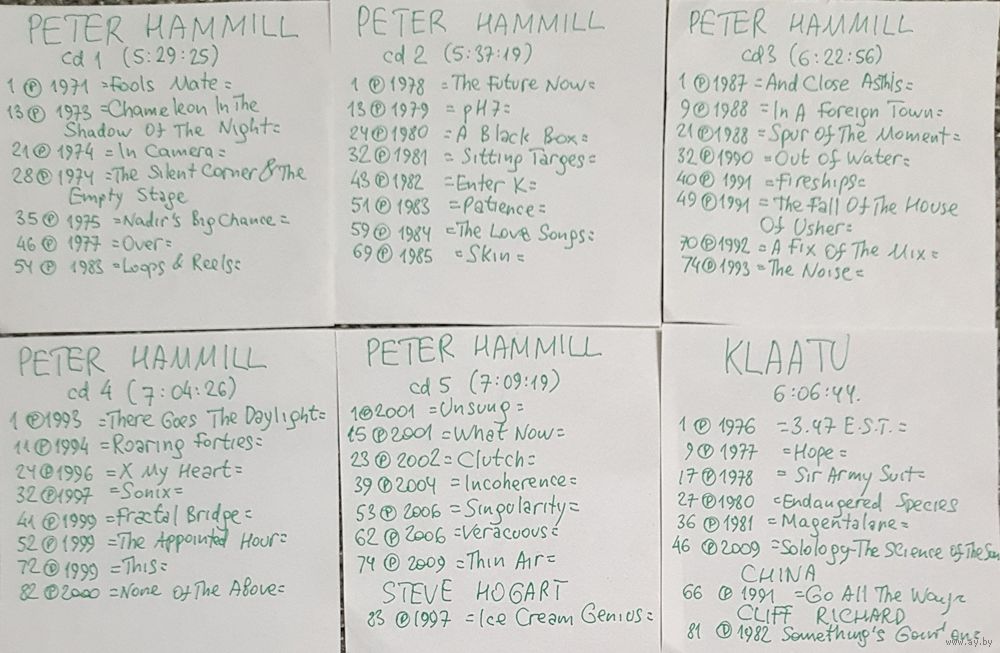 PETER HAMMILL
cd 1 (5:29:25)
1 Ⓟ 1971 =Fools Mate=
13 Ⓟ 1973 =Chameleon In The
Shadow Of The Night=
21 Ⓟ 1974 =In Camera=
28 Ⓟ 1974 =The Silent Corner & The
Empty Stage
35 Ⓟ 1975 =Nadir's Big Chance=
46 Ⓟ 1977 =Over=
54 Ⓟ 1983 =Loops & Reels=
PETER HAMMILL
cd 2 (5:37:19)
1 Ⓟ 1978 =The Future Now=
13 Ⓟ 1979 =pH7=
24 Ⓟ 1980 =A Black Box=
32 Ⓟ 1981 =Sitting Targes=
43 Ⓟ 1982 =Enter K=
51 Ⓟ 1983 =Patience=
59 Ⓟ 1984 =The Love Songs=
69 Ⓟ 1985 =Skin=
PETER HAMMILL
cd3 (6:22:56)
1 Ⓟ 1987 =And Close AsThis=
9 Ⓟ 1988 =In A Foreign Town=
21 Ⓟ 1988 =Spur Of The Moment=
32 Ⓟ 1990 =Out Of Water=
40 Ⓟ 1991 =Fireships=
49 Ⓟ 1991 =The Fall Of The House
Of Usher=
70 Ⓟ 1992 =A Fix Of The Mix=
74 Ⓟ 1993 =The Noise=
PETER HAMMILL
cd 4 (7:04:26)
1 Ⓟ 1993 =There Goes The Daylight=
11 Ⓟ 1994 =Roaring Forties=
24 Ⓟ 1996 =X My Heart=
32 Ⓟ 1997 =Sonix=
41 Ⓟ 1999 =Fractal Bridge=
52 Ⓟ 1999 =The Appointed Hour=
72 Ⓟ 1999 =This=
82 Ⓟ 2000 =None Of The Above=
PETER HAMMILL
cd 5 (7:09:19)
1 Ⓟ 2001 =Unsung=
15 Ⓟ 2001 =What Now=
23 Ⓟ 2002 =Clutch=
39 Ⓟ 2004 =Incoherence=
53 Ⓟ 2006 =Singularity=
62 Ⓟ 2006 =Veracuous=
74 Ⓟ 2009 =Thin Air=
STEVE HOGART
83 Ⓟ 1997 =Ice Cream Genius=
KLAATU
6:06:44.
1 Ⓟ 1976 =3.47 E.S.T.=
9 Ⓟ 1977 =Hope=
17 Ⓟ 1978 =Sir Army Suit=
27 Ⓟ 1980 =Endangered Species
36 Ⓟ 1981 =Magentalane=
46 Ⓟ 2009 =Solology-The Science Of The Sun
CHINA
66 Ⓟ 1991 =Go All The Way=
CLIFF RICHARD
81 Ⓟ 1982 Something's Goin' on=
www.ay.by